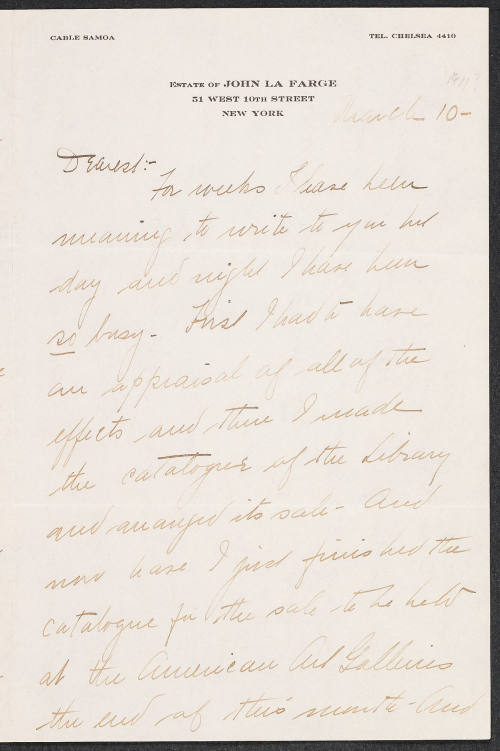 CABLE SAMOA
TEL. CHELSEA 4410
ESTATE OF JOHN LA FARGE
51 WEST 10TH STREET
NEW YORK
1911?
March 10-
Dearest:-
For weeks I have been
meaning to write to you but
day and night I have been
so busy - First I had to have
an appraisal of all of the
effects and then I made
the catalogues of the Library
and arranged its sale - And
now have I just finished the
catalogue for the sale to be held
at the American Art Galleries
the end of this month - And